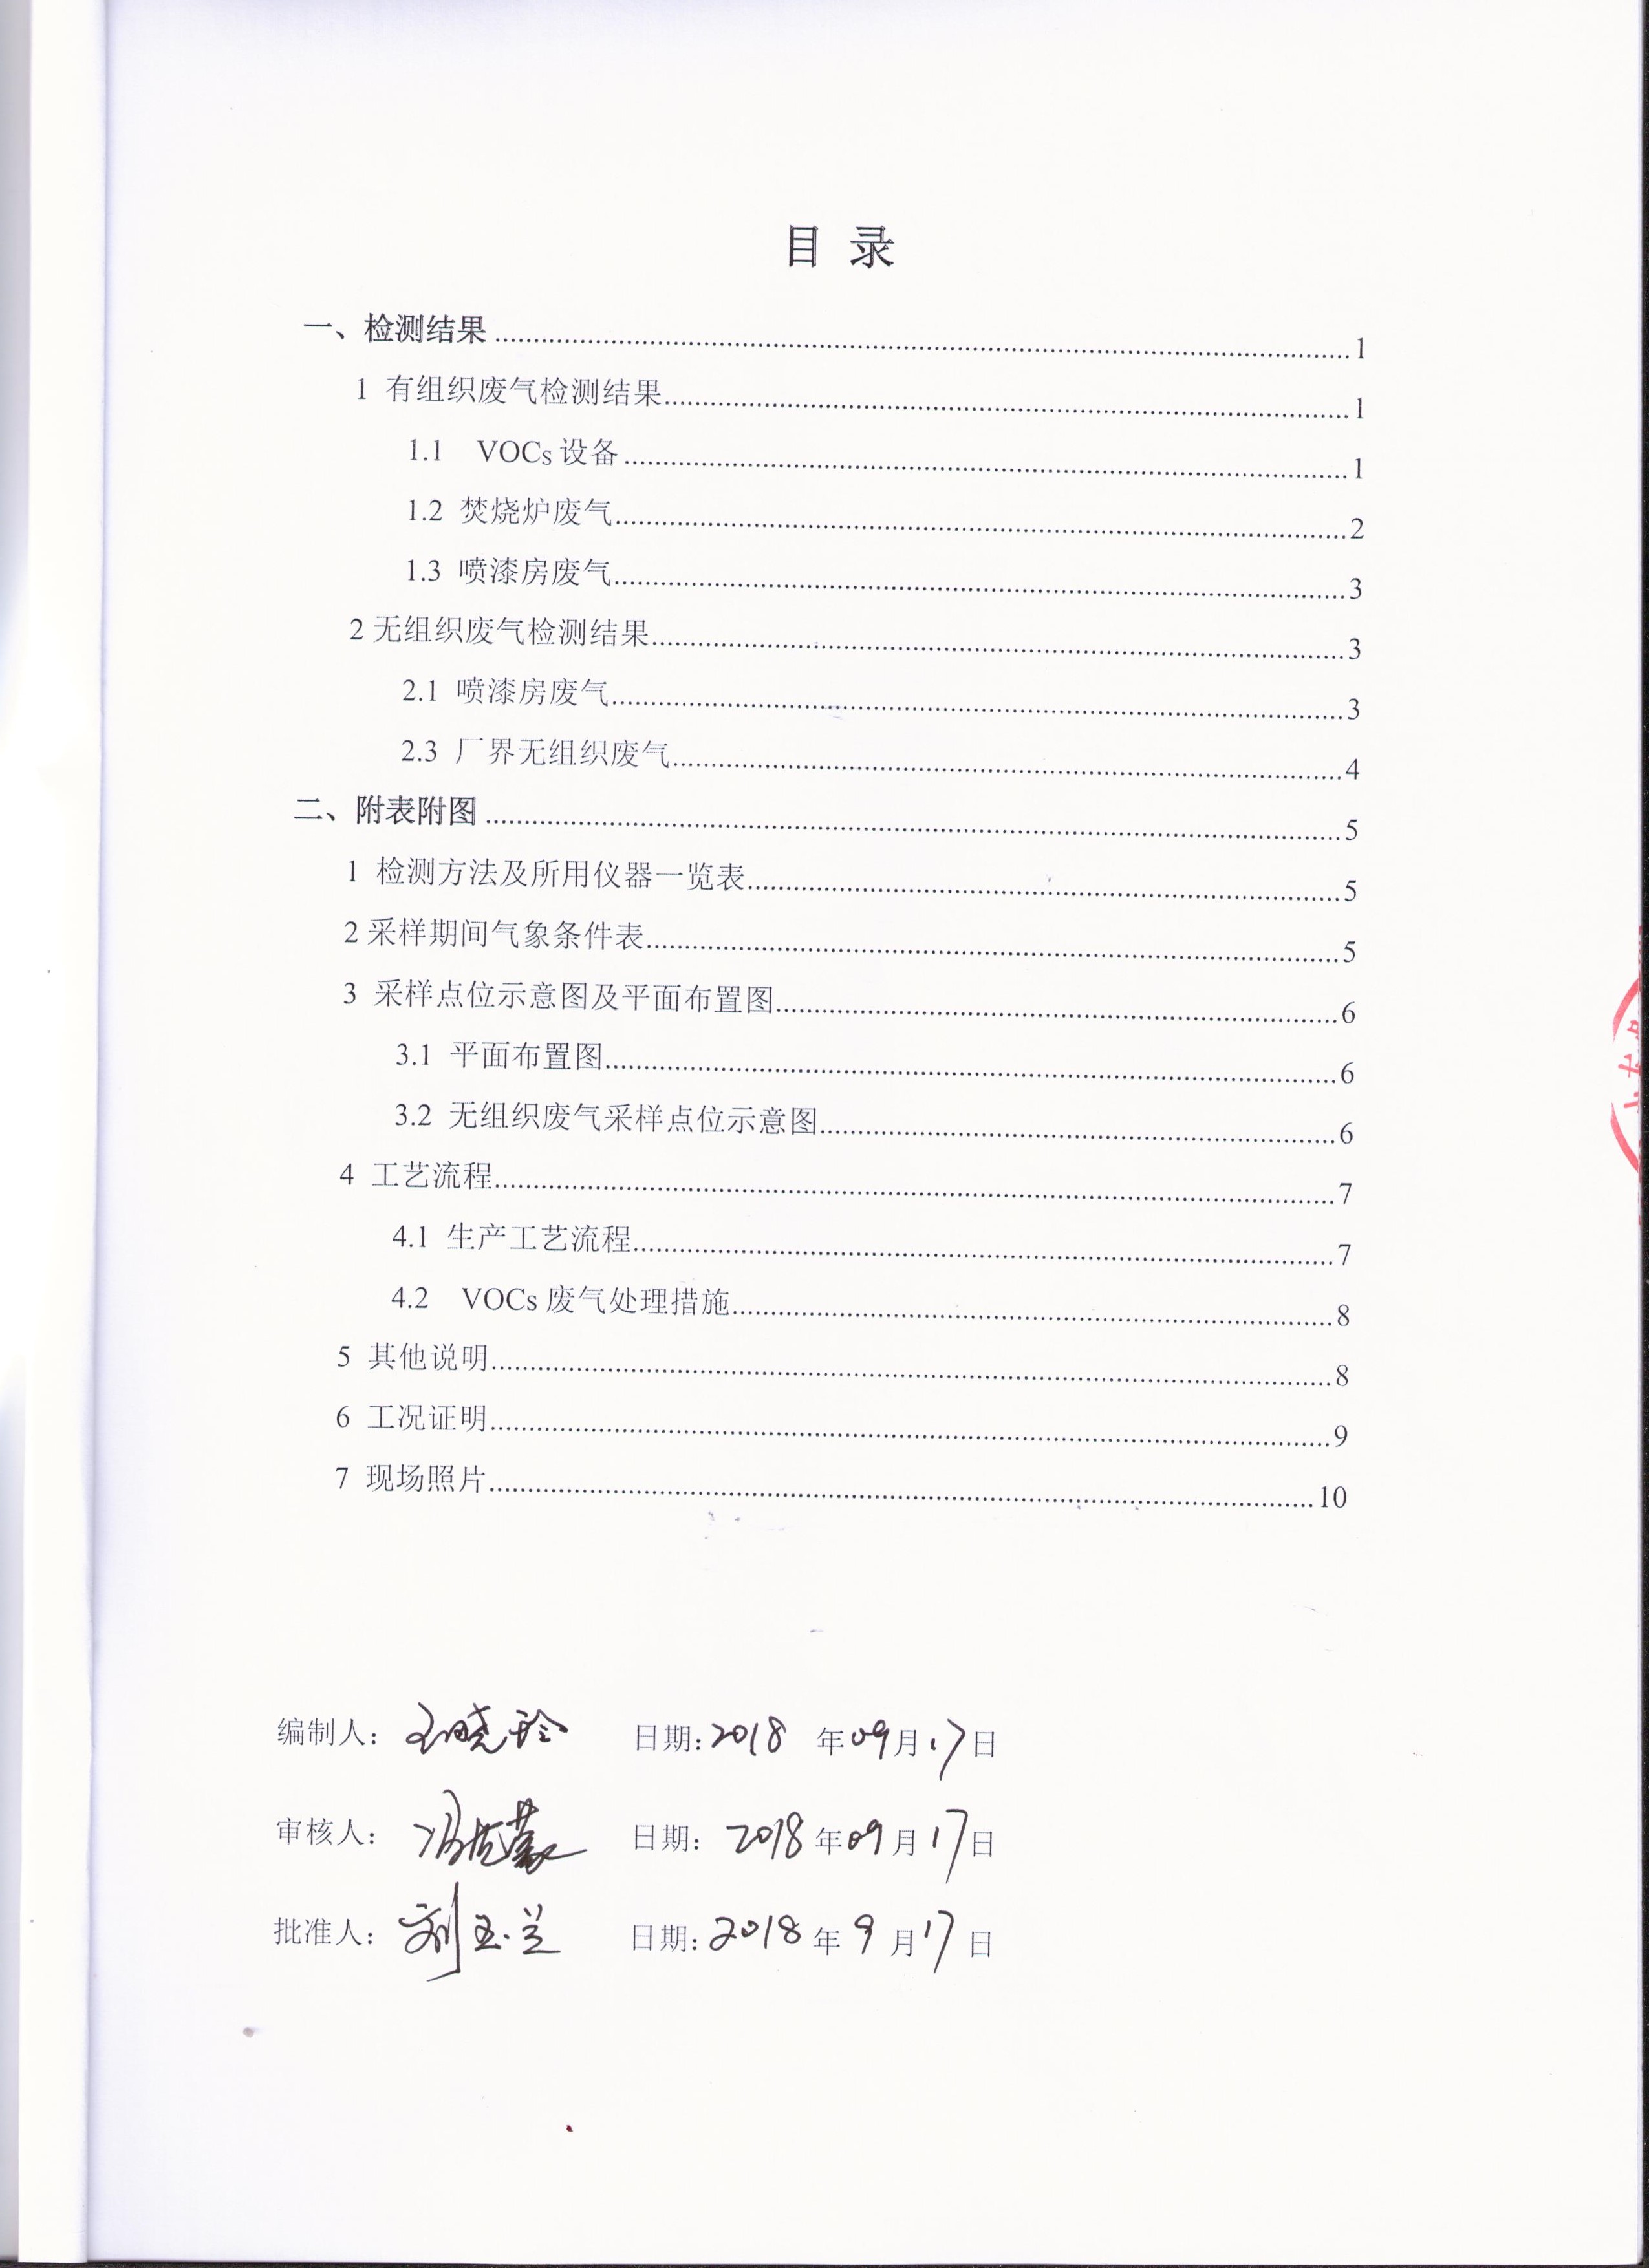 目 录
一、检测结果 1
1 有组织废气检测结果 1
1.1 VOCs 设备 1
1.2 焚烧炉废气 2
1.3 喷漆房废气 3
2 无组织废气检测结果 3
2.1 喷漆房废气 3
2.3 厂界无组织废气 4
二、附表附图 5
1 检测方法及所用仪器一览表 5
2 采样期间气象条件表 5
3 采样点位示意图及平面布置图 6
3.1 平面布置图 6
3.2 无组织废气采样点位示意图 6
4 工艺流程 7
4.1 生产工艺流程 7
4.2 VOCs 废气处理措施 8
5 其他说明 8
6 工况证明 9
7 现场照片 10
编制人： 王晓玲 日期：2018 年 09 月 17 日
审核人： 日期：2018 年 09 月 17 日
批准人： 刘玉兰 日期：2018 年 9 月 17 日